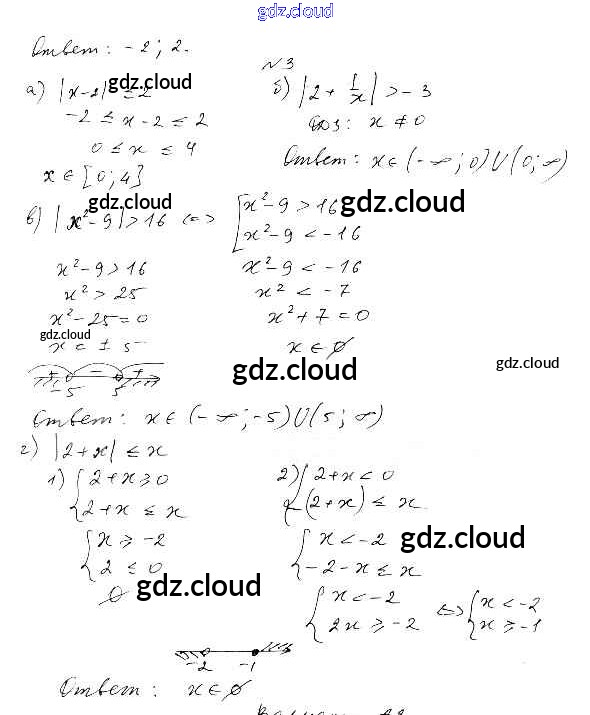 gdz.cloud
Ответ: -2; 2.
N3
а) |x-2| ≤ 2
gdz.cloud
-2 ≤ x-2 ≤ 2
0 ≤ x ≤ 4
x ∈ [0; 4]
б) |2 + 1/x| > -3
ОДЗ: x ≠ 0
Ответ: x ∈ (-∞; 0) U (0; ∞)
gdz.cloud
gdz.cloud
в) |x²-9| > 16 <=> [x²-9 > 16
x²-9 < -16
x²-9 > 16
x² > 25
x²-25 = 0
gdz.cloud
x = ± 5
x²-9 < -16
x² < -7
x²+7 = 0
x ∈ ∅
gdz.cloud
gdz.cloud
+ - +
-5 5
Ответ: x ∈ (-∞; -5) U (5; ∞)
г) |2+x| ≤ x
1) {2+x ≥ 0
2+x ≤ x
{x ≥ -2
2 ≤ 0
∅
gdz.cloud
2) {2+x < 0
-(2+x) ≤ x
{x < -2
-2-x ≤ x
gdz.cloud
{x < -2
2x ≥ -2
<=> {x < -2
x ≥ -1
-2 -1
Ответ: x ∈ ∅